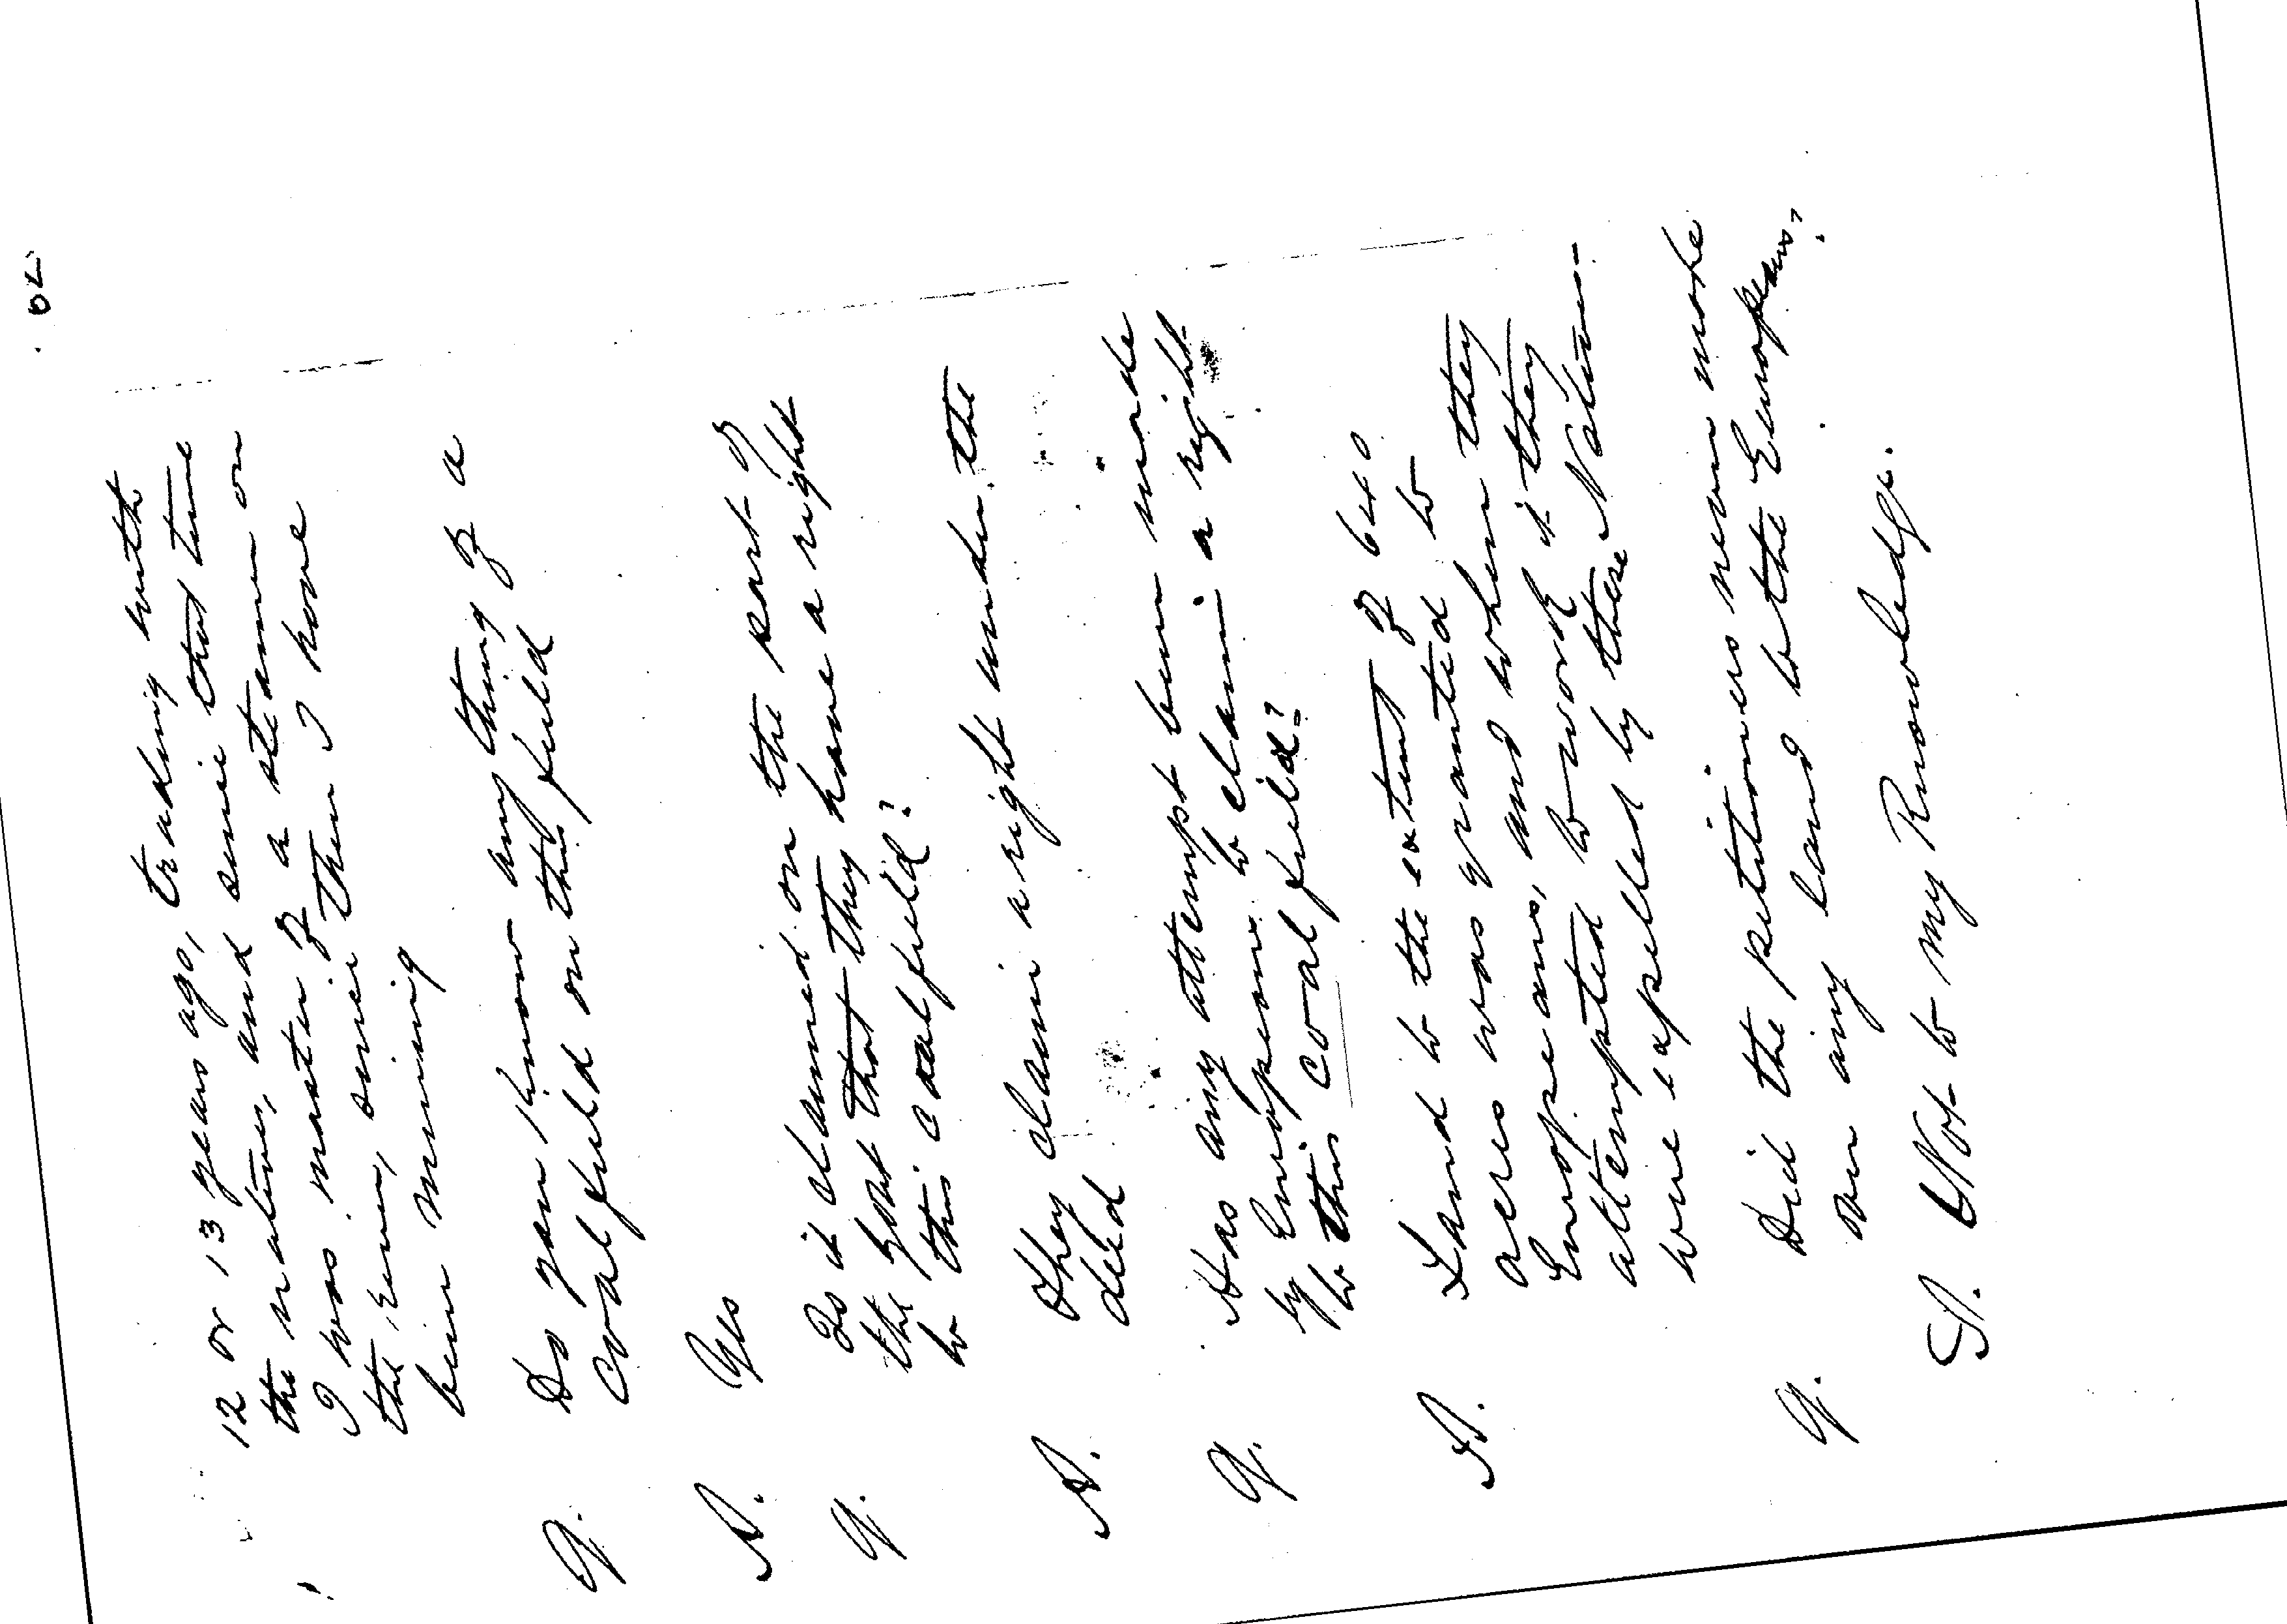 70.
12 or 13 years ago, trading with
the natives, and since that time
I was master of a steamer on
the river, since then I have
been mining
Q. Do you know any thing of a
coal field on this field
A. Yes
Q. Is it claimed on the part of
the that they have a right
to this coal field?
A. They claim a right under the
deed
Q. Has any attempt been made
by Europeans to claim a right
to this coal field?
A. Land to the extent of 640
acres was granted to
Europeans, and when they
attempted to work it they
were expelled by these Natives
Q. Did the petitioners never make
over any land to the Europeans?
A. Not to my Knowledge.